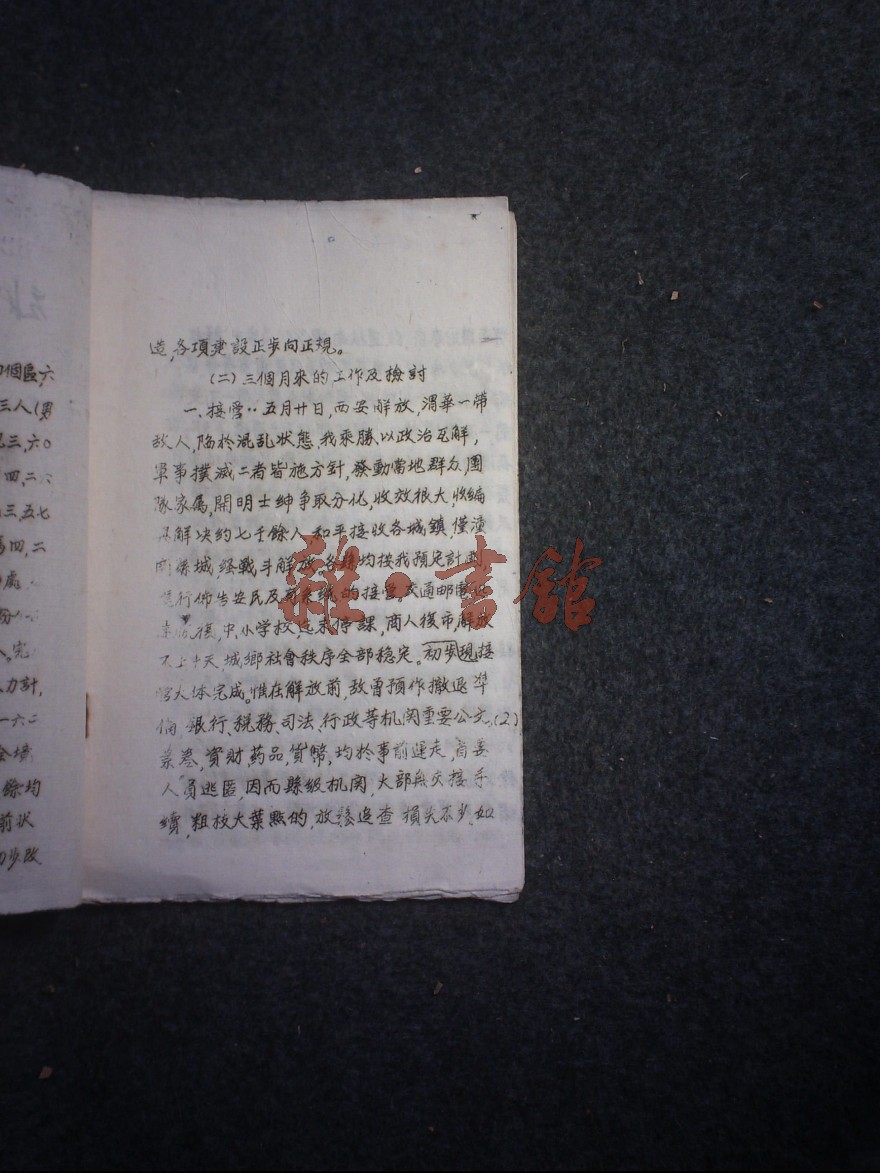 造,各項建設正步向正規。
(二)三個月來的工作及檢討
一、接管··五月廿日,西安解放,渭華一帶
敌人,陷於混乱状態,我乘勝,以政治瓦解,
軍事撲滅二者皆施方針,發動當地群众,團
隊家属,開明士紳争取分化,收效很大,收編
解决約七千餘人,和平接收各城鎮,僅潼
県城,经戰斗解放。各縣均按我預定計划,
進行佈告安民及有系統的接管,交通邮電
恢復,中,小学校,迄未停課,商人復市,解放
不上十天,城鄉社會秩序全部稳定。初步現接
管大体完成。惟在解放前,敌曾預作撤退準
備,銀行、税務、司法、行政等机関重要公文,(2)
案卷,資財,药品,貨幣,均於事前運走,
人員逃匿,因而縣級机関,大部無交接手
續,粗枝大葉點的,放鬆追查,損失不少,如
個區,六
三人(男
三,六〇
四,二六
三,五七
四,二
處
份
完
力計,
一六二
餘均
前状
初步改
雜·書館